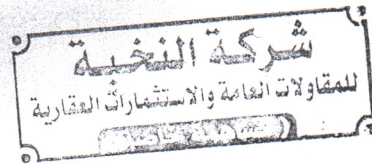 شركة النخبة
للمقاولات العامة والاستثمارات العقارية